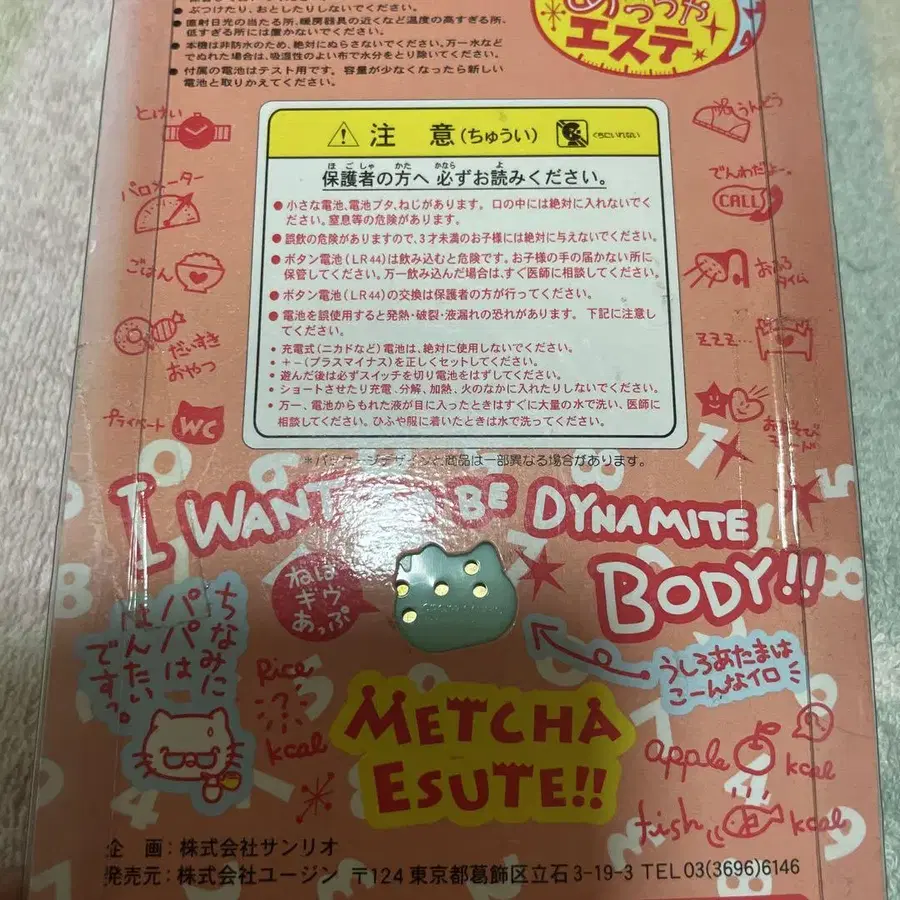 ● ぶつけたり、おとしたりしないでください。
● 直射日光の当たる所、暖房器具の近くなど温度の高すぎる所、
低すぎる所には置かないでください。
● 本機は非防水のため、絶対にぬらさないでください。万一水など
でぬれた場合は、吸湿性のよい布で水分をとり除いてください。
● 付属の電池はテスト用です。容量が少なくなったら新しい
電池と取りかえてください。
めっちゃ
エステ
⚠ 注 意(ちゅうい)
くちにいれない
ほごしゃ かた かなら よ
保護者の方へ 必ずお読みください。
● 小さな電池、電池ブタ、ねじがあります。口の中には絶対に入れないでく
ださい。窒息等の危険があります。
● 誤飲の危険がありますので、3才未満のお子様には絶対に与えないでください。
● ボタン電池(LR44)は飲み込むと危険です。お子様の手の届かない所に
保管してください。万一飲み込んだ場合は、すぐ医師に相談してください。
● ボタン電池(LR44)の交換は保護者の方が行ってください。
● 電池を誤使用すると発熱・破裂・液漏れの恐れがあります。下記に注意し
てください。
• 充電式(ニカドなど)電池は、絶対に使用しないでください。
• +−(プラスマイナス)を正しくセットしてください。
• 遊んだ後は必ずスイッチを切り電池をはずしてください。
• ショートさせたり充電、分解、加熱、火のなかに入れたりしないでください。
• 万一、電池からもれた液が目に入ったときはすぐに大量の水で洗い、医師に
相談してください。ひふや服に着いたときは水で洗ってください。
*パッケージデザインと商品は一部異なる場合があります。
とけい
バロメーター
ごはん
だいすき
おやつ
プライベート
WC
うんどう
でんわだよー。
CALL
おふろ
タイム
ZZZ...
I WANT TO BE DYNAMITE
BODY!!
ねば
ギヴ
あっぷ
ちなみに
パパは
へんたい
ですっ。
うしろあたまは
こーんなイロ
Rice
kcal
METCHA
ESUTE!!
apple
kcal
fish
kcal
企 画:株式会社サンリオ
発売元:株式会社ユージン 〒124 東京都葛飾区立石3-19-3 TEL03(3696)6146